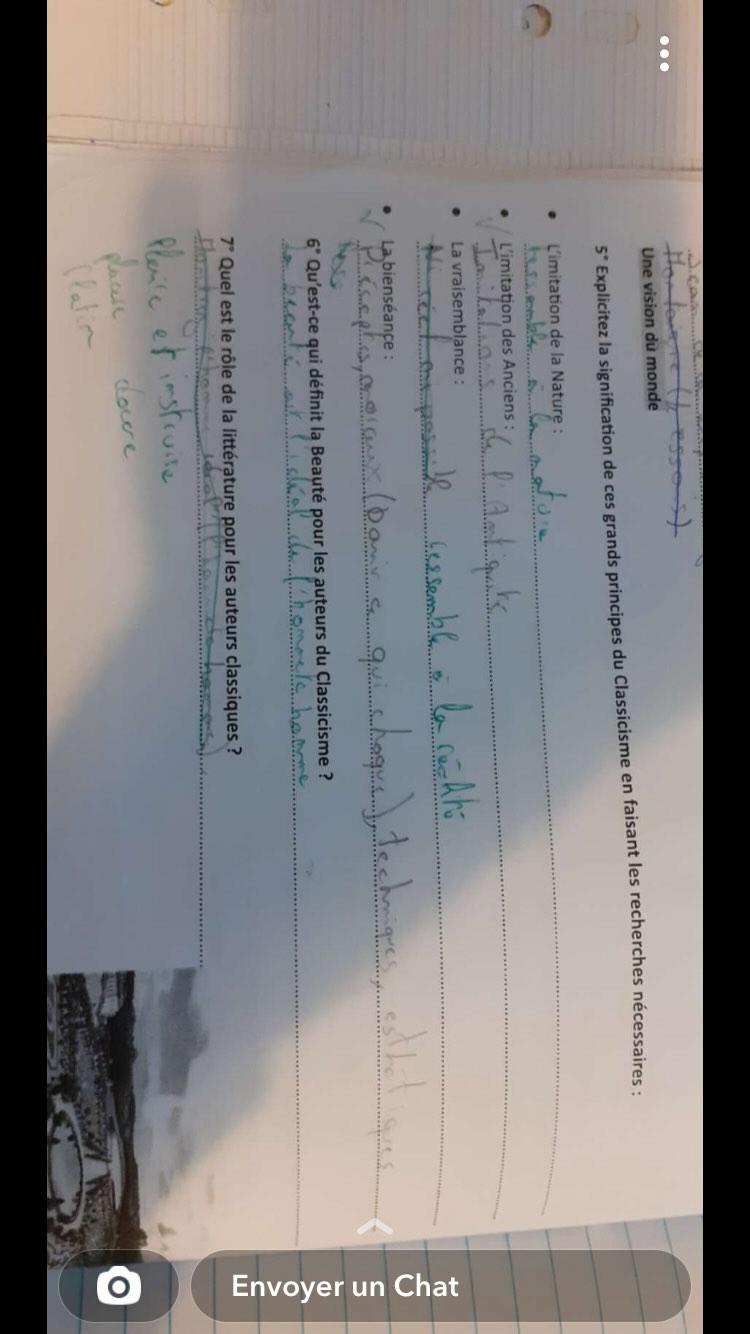 Montaigne (L'essai)
Une vision du monde
5° Explicitez la signification de ces grands principes du Classicisme en faisant les recherches nécessaires :
• L'imitation de la Nature :
ressemble à la nature
• L'imitation des Anciens :
√ Imitations de l'Antiquité
• La vraisemblance :
ressemble à la réalité
• La bienséance :
√ Préceptes, moraux (bannir ce qui choque), techniques, esthétiques
6° Qu'est-ce qui définit la Beauté pour les auteurs du Classicisme ?
La beauté est l'idéal de l'honnete homme
7° Quel est le rôle de la littérature pour les auteurs classiques ?
Plaire et instruire
placere docere
(latin
Envoyer un Chat